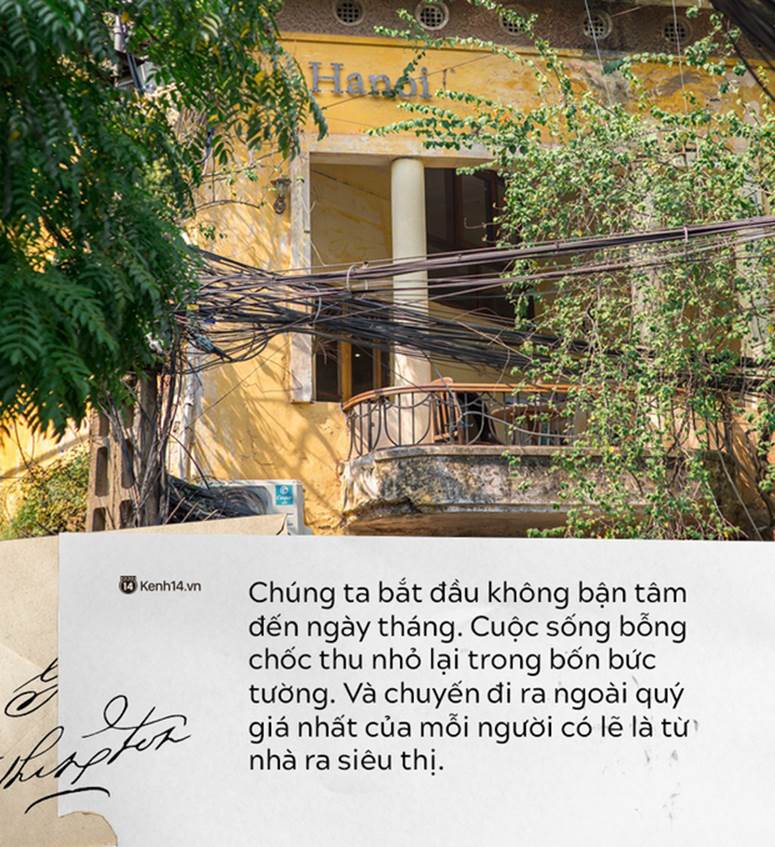 Hanoi
Kenh14.vn
Chúng ta bắt đầu không bận tâm
đến ngày tháng. Cuộc sống bỗng
chốc thu nhỏ lại trong bốn bức
tường. Và chuyến đi ra ngoài quý
giá nhất của mỗi người có lẽ là từ
nhà ra siêu thị.